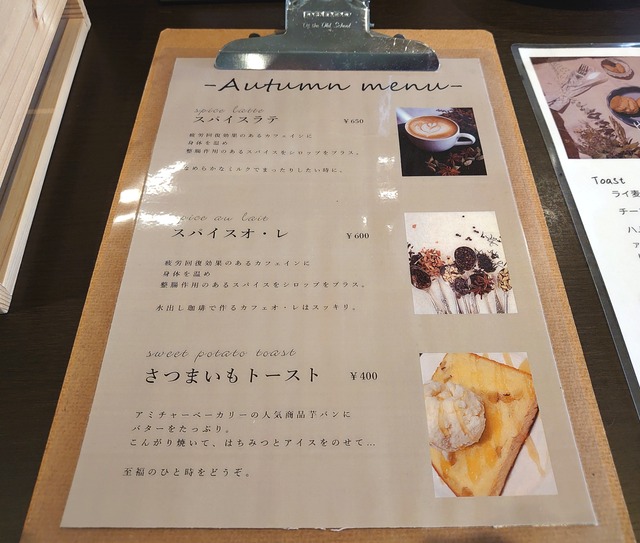 -Autumn menu-
spice latte
スパイスラテ ¥650
疲労回復効果のあるカフェインに
身体を温め
整腸作用のあるスパイスをシロップをプラス。
なめらかなミルクでまったりしたい時に。
spice au lait
スパイスオ・レ ¥600
疲労回復効果のあるカフェインに
身体を温め
整腸作用のあるスパイスをシロップをプラス。
水出し珈琲で作るカフェオ・レはスッキリ。
sweet potato toast
さつまいもトースト ¥400
アミチャーベーカリーの人気商品芋パンに
バターをたっぷり。
こんがり焼いて、はちみつとアイスをのせて…
至福のひと時をどうぞ。
Toast
ライ麦
チー
ハム